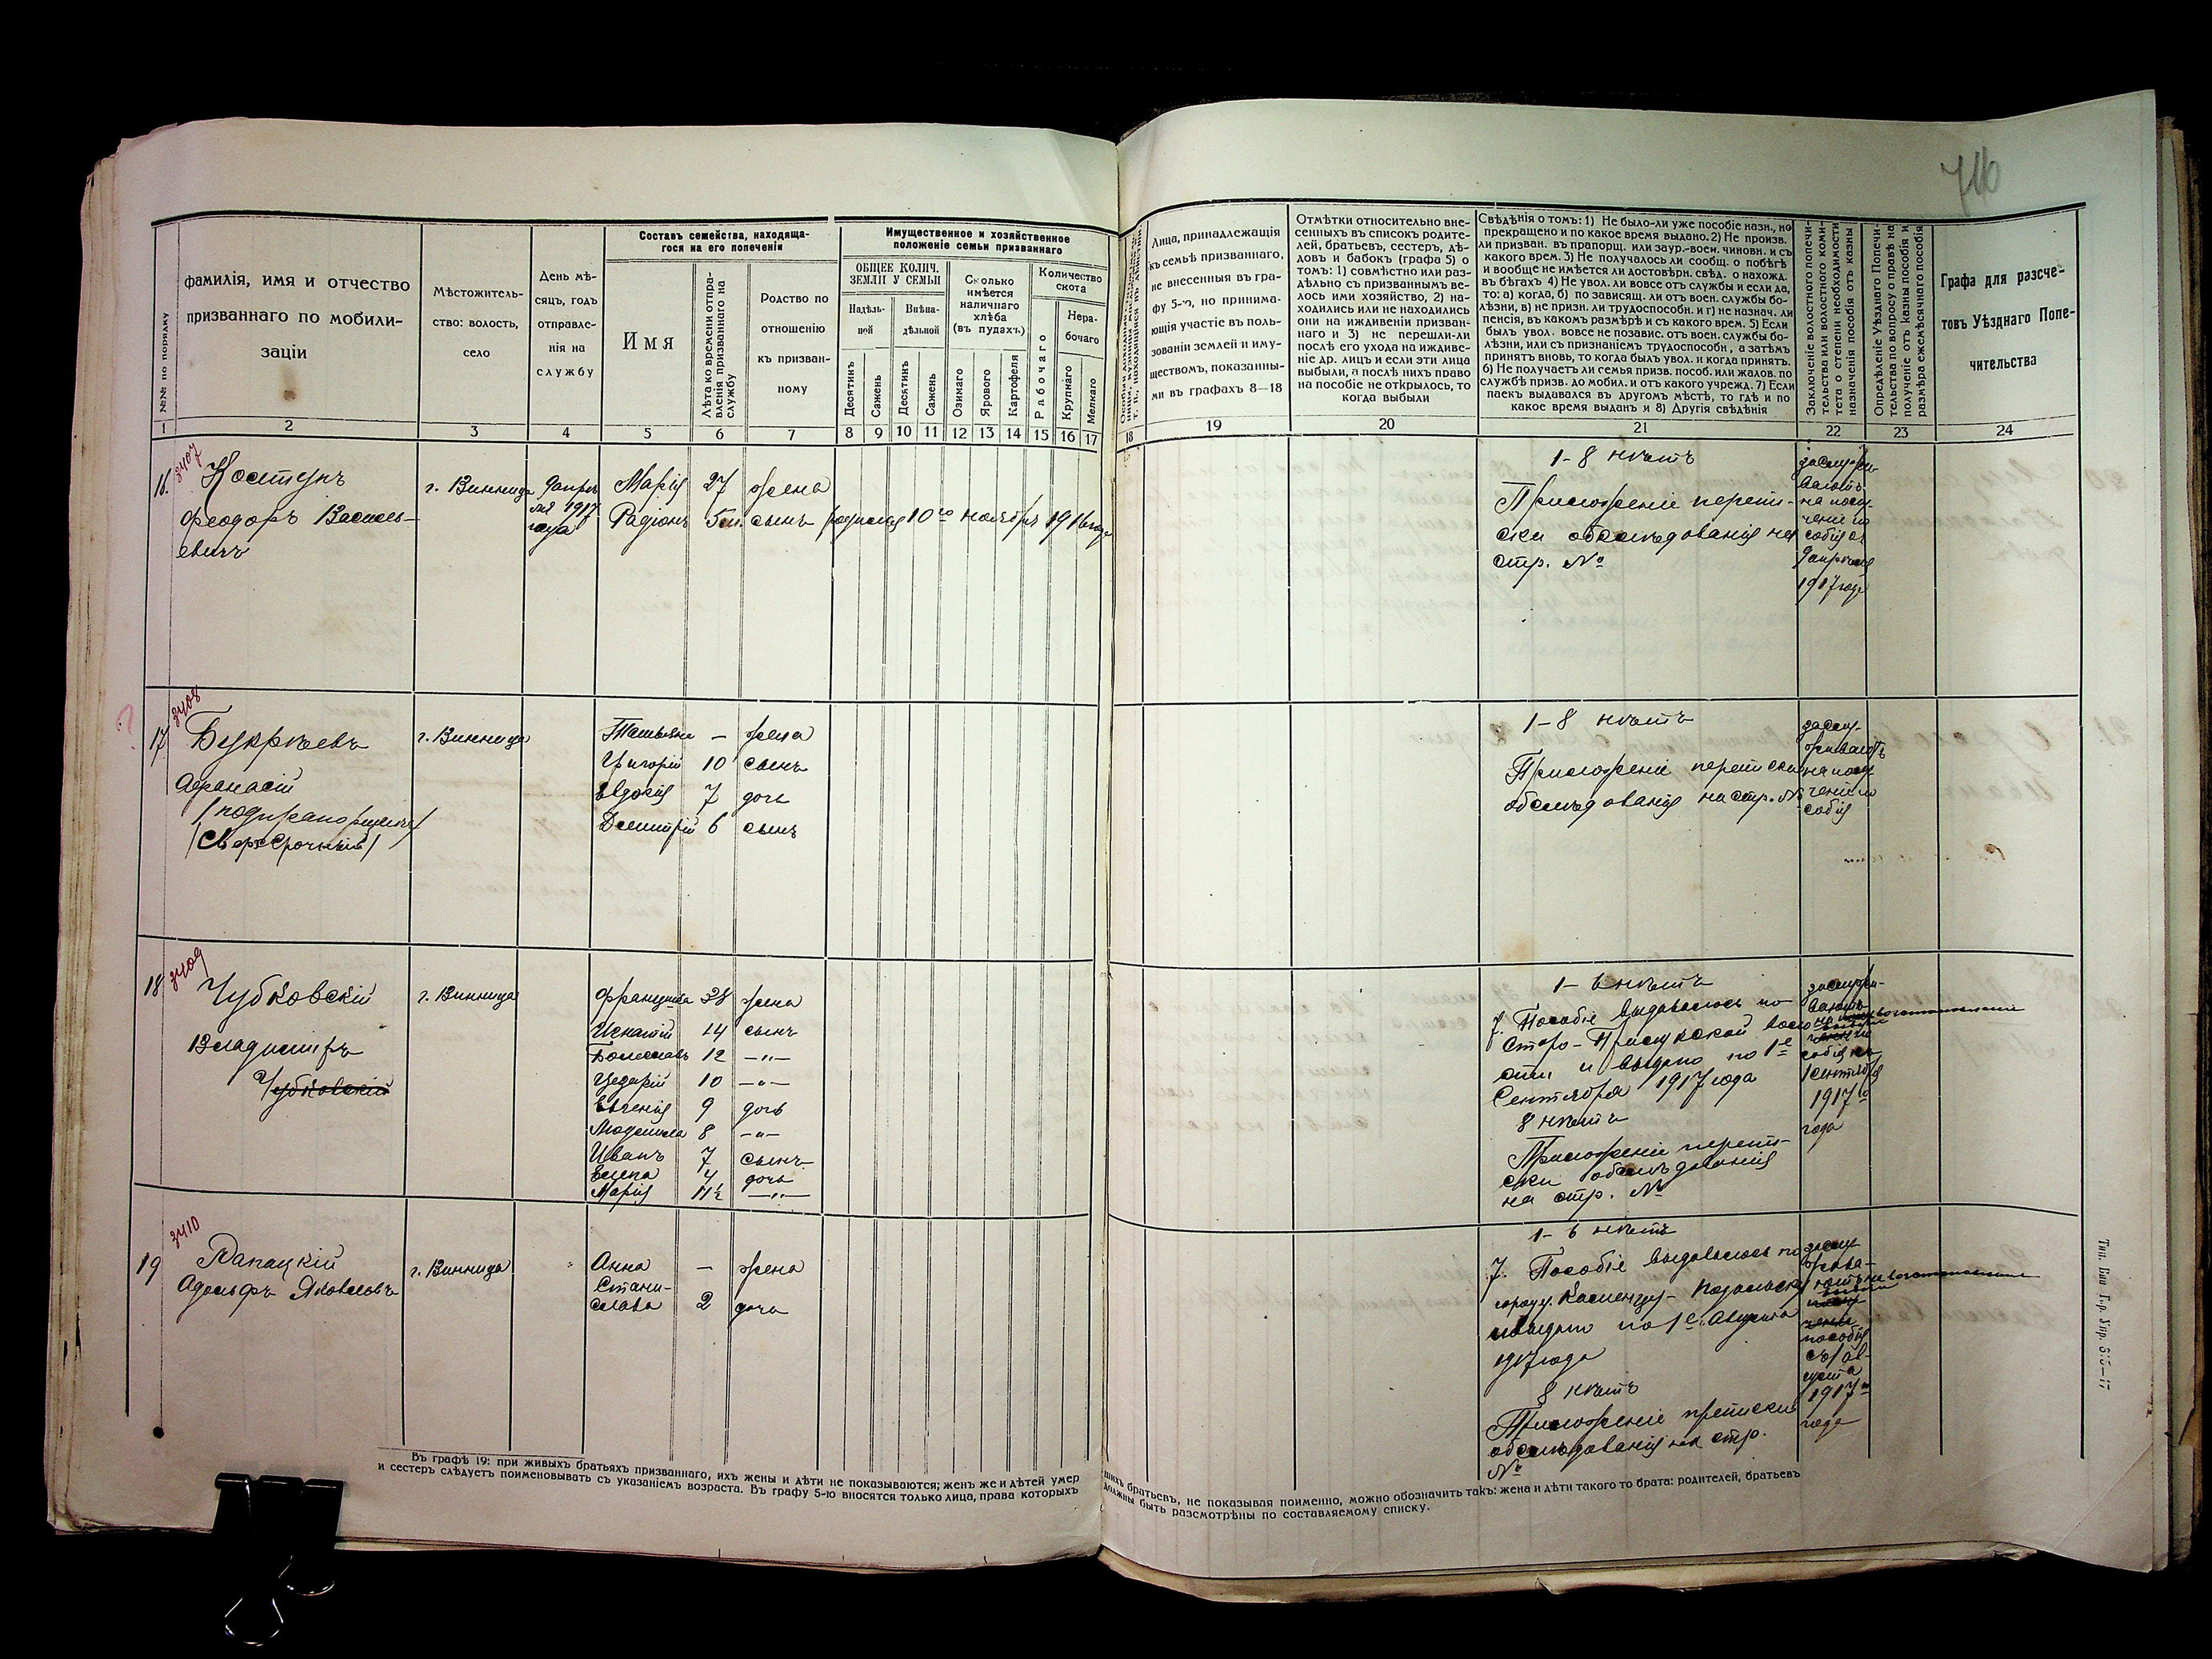 716
№№ по порядку
фамилія, имя и отчество
призваннаго по мобили-
заціи
Мѣстожитель-
ство: волость,
село
День мѣ-
сяцъ, годъ
отправле-
нія на
службу
Составъ семейства, находяща-
гося на его попеченіи
Имя
Лѣта ко времени отпра-
вленія призваннаго на
службу
Родство по
отношенію
къ призван-
ному
Имущественное и хозяйственное
положеніе семьи призваннаго
ОБЩЕЕ КОЛИЧ.
ЗЕМЛИ У СЕМЬИ
Надѣль-
ной
Внѣна-
дѣльной
Десятинъ
Сажень
Десятинъ
Сажень
Сколько
имѣется
наличнаго
хлѣба
(въ пудахъ)
Озимаго
Ярового
Картофеля
Количество
скота
Рабочаго
Нера-
бочаго
Крупнаго
Мелкаго
Лица, принадлежащія
къ семьѣ призваннаго,
не внесенныя въ гра-
фу 5-ю, но принима-
ющія участіе въ поль-
зованіи землей и иму-
ществомъ, показанны-
ми въ графахъ 8—18
Отмѣтки относительно вне-
сенныхъ въ списокъ родите-
лей, братьевъ, сестеръ, дѣ-
довъ и бабокъ (графа 5) о
томъ: 1) совмѣстно или раз-
дѣльно съ призваннымъ ве-
лось ими хозяйство, 2) на-
ходились или не находились
они на иждивеніи призван-
наго и 3) не перешли-ли
послѣ его ухода на иждиве-
ніе др. лицъ и если эти лица
выбыли, а послѣ нихъ право
на пособіе не открылось, то
когда выбыли
Свѣдѣнія о томъ: 1) Не было-ли уже пособіе назн., но
прекращено и по какое время выдано. 2) Не произв.
ли призван. въ прапорщ. или заур.-воен. чиновн. и съ
какого врем. 3) Не получалось ли сообщ. о побѣгѣ
и вообще не имѣется ли достовѣрн. свѣд. о нахожд.
въ бѣгахъ 4) Не увол. ли вовсе отъ службы и если да,
то: а) когда, б) по зависящ. ли отъ воен. службы бо-
лѣзни, в) не призн. ли трудоспособн. и г) не назнач. ли
пенсія, въ какомъ размѣрѣ и съ какого врем. 5) Если
былъ увол. вовсе не позавис. отъ воен. службы бо-
лѣзни, или съ признаніемъ трудоспособн, а затѣмъ
принятъ вновь, то когда былъ увол. и когда принятъ.
6) Не получаетъ ли семья призв. пособ. или жалов. по
службѣ призв. до мобил. и отъ какого учрежд. 7) Если
паекъ выдавался въ другомъ мѣстѣ, то гдѣ и по
какое время выданъ и 8) Другія свѣдѣнія
Заключеніе волостного попечи-
тельства или волостного коми-
тета о степени необходимости
назначенія пособія отъ казны
Опредѣленіе Уѣзднаго Попечи-
тельства по вопросу о правѣ на
полученіе отъ казны пособія и
размѣра ежемѣсячнаго пособія
Графа для разсче-
товъ Уѣзднаго Попе-
чительства
1 2 3 4 5 6 7 8 9 10 11 12 13 14 15 16 17 18 19 20 21 22 23 24
16. 3407
Костунъ
Феодоръ Василь-
евичъ
г. Винница
9 апрѣ-
ля 1917
года
Марія 27 жена
Радіонъ 5 м. сынъ родился 10го ноября 1916 года
1-8 нѣтъ
Приложеніе перепи-
ски обслѣдованія на
стр. №
заслужи-
ваютъ
на полу-
ченіе по
собія съ
9 апрѣля
1917 года
?
17 3408
Букрѣевъ
Афанасій
/подпрапорщикъ/
/Сверхсрочный/
г. Винница
Татьяна – жена
Григорій 10 сынъ
Евдокія 7 дочь
Димитрій 6 сынъ
1-8 нѣтъ
Приложеніе переписки
обслѣдованія на стр. №
заслу-
живаютъ
на полу
ченіе по
собія
18 3409
Чубковскій
Владиміръ
Чубковскій
г. Винница
Францишка 38 жена
Игнатій 14 сынъ
Болеславъ 12 –"–
Цезарій 10 –"–
Евгенія 9 дочь
Людмила 8 –"–
Иванъ 7 сынъ
Елена 4 дочь
Марія 1½ –"–
1-6 нѣтъ
7. Пособіе выдавалось по
Старо-Прилукской воло
сти и выдано по 1е
Сентября 1917 года
8 нѣтъ
Приложеніе перепи-
ски обслѣдованія
на стр. №
заслужи-
ваютъ
собія съ
1 сентября
1917 го
года
19 3410
Папацкій
Адольфъ Яковлевъ
г. Винница
Анна – жена
Стани-
слава 2 дочь
1-6 нѣтъ
7. Пособіе выдавалось по
городу Каменцу-Подольску
и выдано по 1е Августа
1917 года
8 нѣтъ
Приложеніе преписки
обслѣдованія на стр.
№
заслу-
жива-
пособія
съ 1 ав-
густа
1917 го
года
Въ графѣ 19: при живыхъ братьяхъ призваннаго, ихъ жены и дѣти не показываются; женъ же и дѣтей умер
шихъ братьевъ, не показывая поименно, можно обозначить такъ: жена и дѣти такого то брата: родителей, братьевъ
и сестеръ слѣдуетъ поименовывать съ указаніемъ возраста. Въ графу 5-ю вносятся только лица, права которыхъ
должны быть разсмотрѣны по составляемому списку.